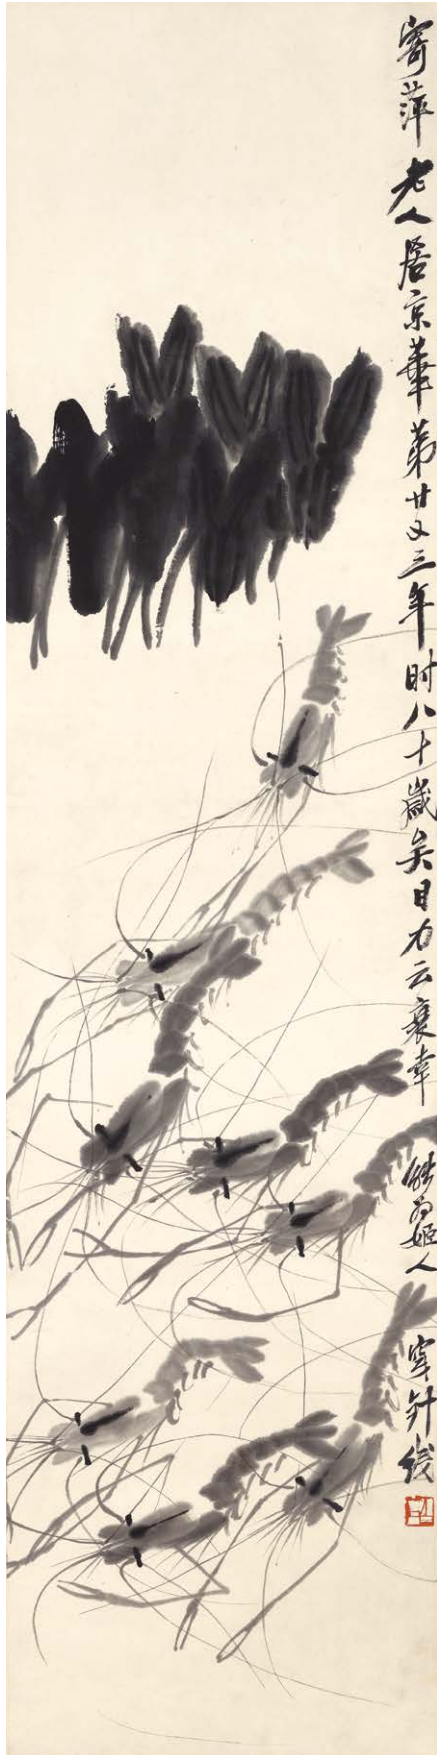 寄萍老人居京華第廿又三年时八十歲矣目力云衰幸能为姬人穿針线